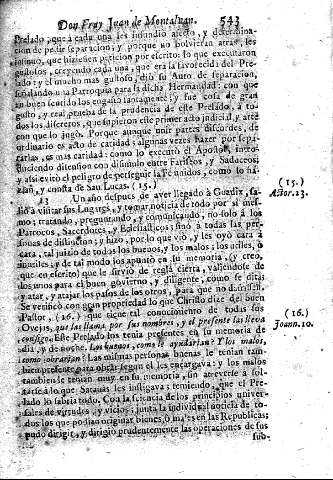 Don Fray Juan de Montalvan. 543
Prelado, que à cada una les infundiò afecto, y determina-
cion de pedir separacion; y porque no bolvieran atràs, les
insinuò, que hiziessen peticion por escrito lo que executaron
gustosos, creyendo cada una, que era la favorecida del Pre-
lado; y el mucho mas gustoso, diò su Auto de separacion,
señalando una Parroquia para la dicha Hermandad: con que
en buen sentido los engañò santamente; y fue cosa de gran
gusto, y real prueba de la prudencia de este Prelado, à to-
dos los discretos, que supieron este primer acto judicial, y arte
con que lo jugò. Porque aunque unir partes discordes, de
ordinario es acto de caridad: algunas vezes hazer por sepa-
rarlas, es mas caridad: como lo executò el Apostol, intro-
duciendo dissension con dissimulo entre Fariseos, y Saduceos;
y assi evitò el peligro de perseguir la Fè unidos, como lo ha-
zian, y consta de San Lucas. (15.)
13 Un año despues de aver llegado à Guadix, sa-
liò à visitar sus Lugares, y tomar noticia de todo por si mes-
mo; tratando, preguntando, y comunicando, no solo à los
Parrocos, Sacerdotes, y Eclesiasticos; sinò à todas las per-
sonas de distincion; y hizo, por lo que viò, y les oyò cara à
cara, tal juizio de todos los buenos, y los malos; los utiles, ò
inutiles; y de tal modo los apuntò en su memoria, (y creo,
que en escrito) que le sirviò de regla cierta, valiendose de
unos para el buen govierno, y diligente, como se dirà,
y atar, y atajar los passos de los otros, para que no dañassen,
y se vinculò con gran propriedad lo que Christo dize del buen
Pastor, (16.) que tiene tal conocimiento de todas sus
Ovejas, que las llama por sus nombres, y el presente las lleva
consigo. Este Prelado los tenia presentes en su memoria de
dia, y de noche. Los buenos, como le ayudarian? Y los malos,
como obrarian? Las mismas personas buenas le tenian tam-
bien presente para obrar segun el les encargava: y los malos
tambien le tenian muy en su memoria, sin atreverse à sol-
tarse à lo que Satanàs les instigava; temiendo, que el Pre-
lado lo sabria todo. Con la sciencia de los principios univer-
sales de virtudes, y vicios; junta la individual noticia de to-
dos los que podian originar bienes, ò males en las Republicas;
pudo dirigir, y dirigiò prudentemente las operaciones de sus
sub-
(15.)
Actor. 23.
(16.)
Joann. 10.